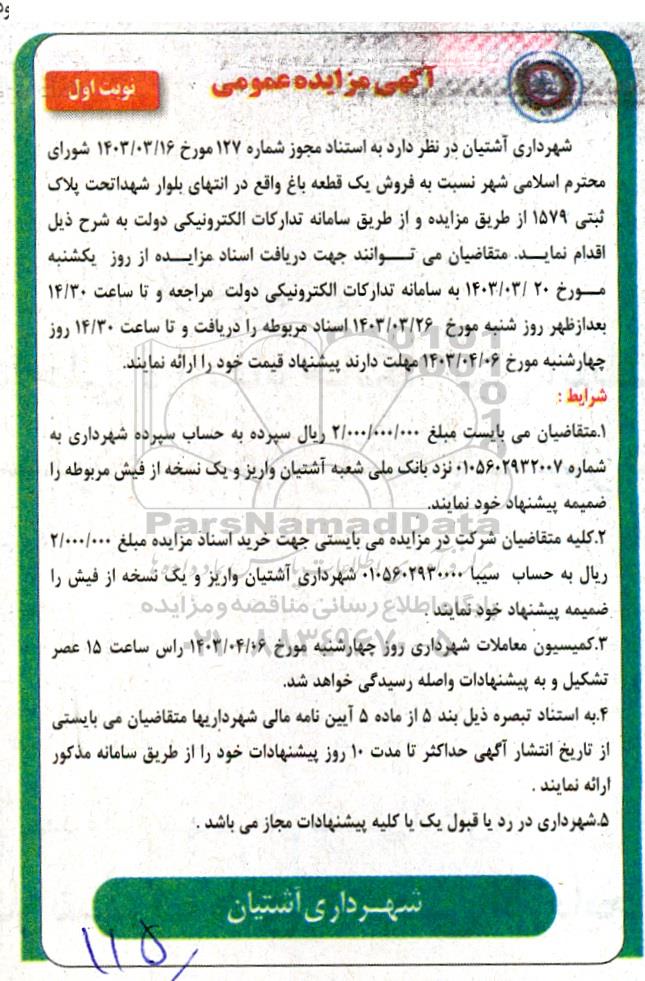 آگهی مزایده عمومی
نوبت اول
شهرداری آشتیان در نظر دارد به استناد مجوز شماره ۱۲۷ مورخ ۱۴۰۳/۰۳/۱۶ شورای
محترم اسلامی شهر نسبت به فروش یک قطعه باغ واقع در انتهای بلوار شهداتحت پلاک
ثبتی ۱۵۷۹ از طریق مزایده و از طریق سامانه تدارکات الکترونیکی دولت به شرح ذیل
اقدام نماید. متقاضیان می توانند جهت دریافت اسناد مزایده از روز یکشنبه
مورخ ۲۰ /۱۴۰۳/۰۳ به سامانه تدارکات الکترونیکی دولت مراجعه و تا ساعت ۱۴/۳۰
بعدازظهر روز شنبه مورخ ۱۴۰۳/۰۳/۲۶ اسناد مربوطه را دریافت و تا ساعت ۱۴/۳۰ روز
چهارشنبه مورخ ۱۴۰۳/۰۴/۰۶ مهلت دارند پیشنهاد قیمت خود را ارائه نمایند.
شرایط :
۱.متقاضیان می بایست مبلغ ۲/۰۰۰/۰۰۰/۰۰۰ ریال سپرده به حساب سپرده شهرداری به
شماره ۰۱۰۵۶۰۲۹۳۲۰۰۷ نزد بانک ملی شعبه آشتیان واریز و یک نسخه از فیش مربوطه را
ضمیمه پیشنهاد خود نمایند.
ParsNamadData
۲.کلیه متقاضیان شرکت در مزایده می بایستی جهت خرید اسناد مزایده مبلغ ۲/۰۰۰/۰۰۰
ریال به حساب سیبا ۰۱۰۵۶۰۲۹۳۰۰۰۰ شهرداری آشتیان واریز و یک نسخه از فیش را
ضمیمه پیشنهاد خود نمایند .
پایگاه اطلاع رسانی مناقصه و مزایده
۳.کمیسیون معاملات شهرداری روز چهارشنبه مورخ ۱۴۰۳/۰۴/۰۶ راس ساعت ۱۵ عصر
تشکیل و به پیشنهادات واصله رسیدگی خواهد شد.
۴.به استناد تبصره ذیل بند ۵ از ماده ۵ آیین نامه مالی شهرداریها متقاضیان می بایستی
از تاریخ انتشار آگهی حداکثر تا مدت ۱۰ روز پیشنهادات خود را از طریق سامانه مذکور
ارائه نمایند .
۵.شهرداری در رد یا قبول یک یا کلیه پیشنهادات مجاز می باشد .
شهرداری آشتیان
۱۱۵